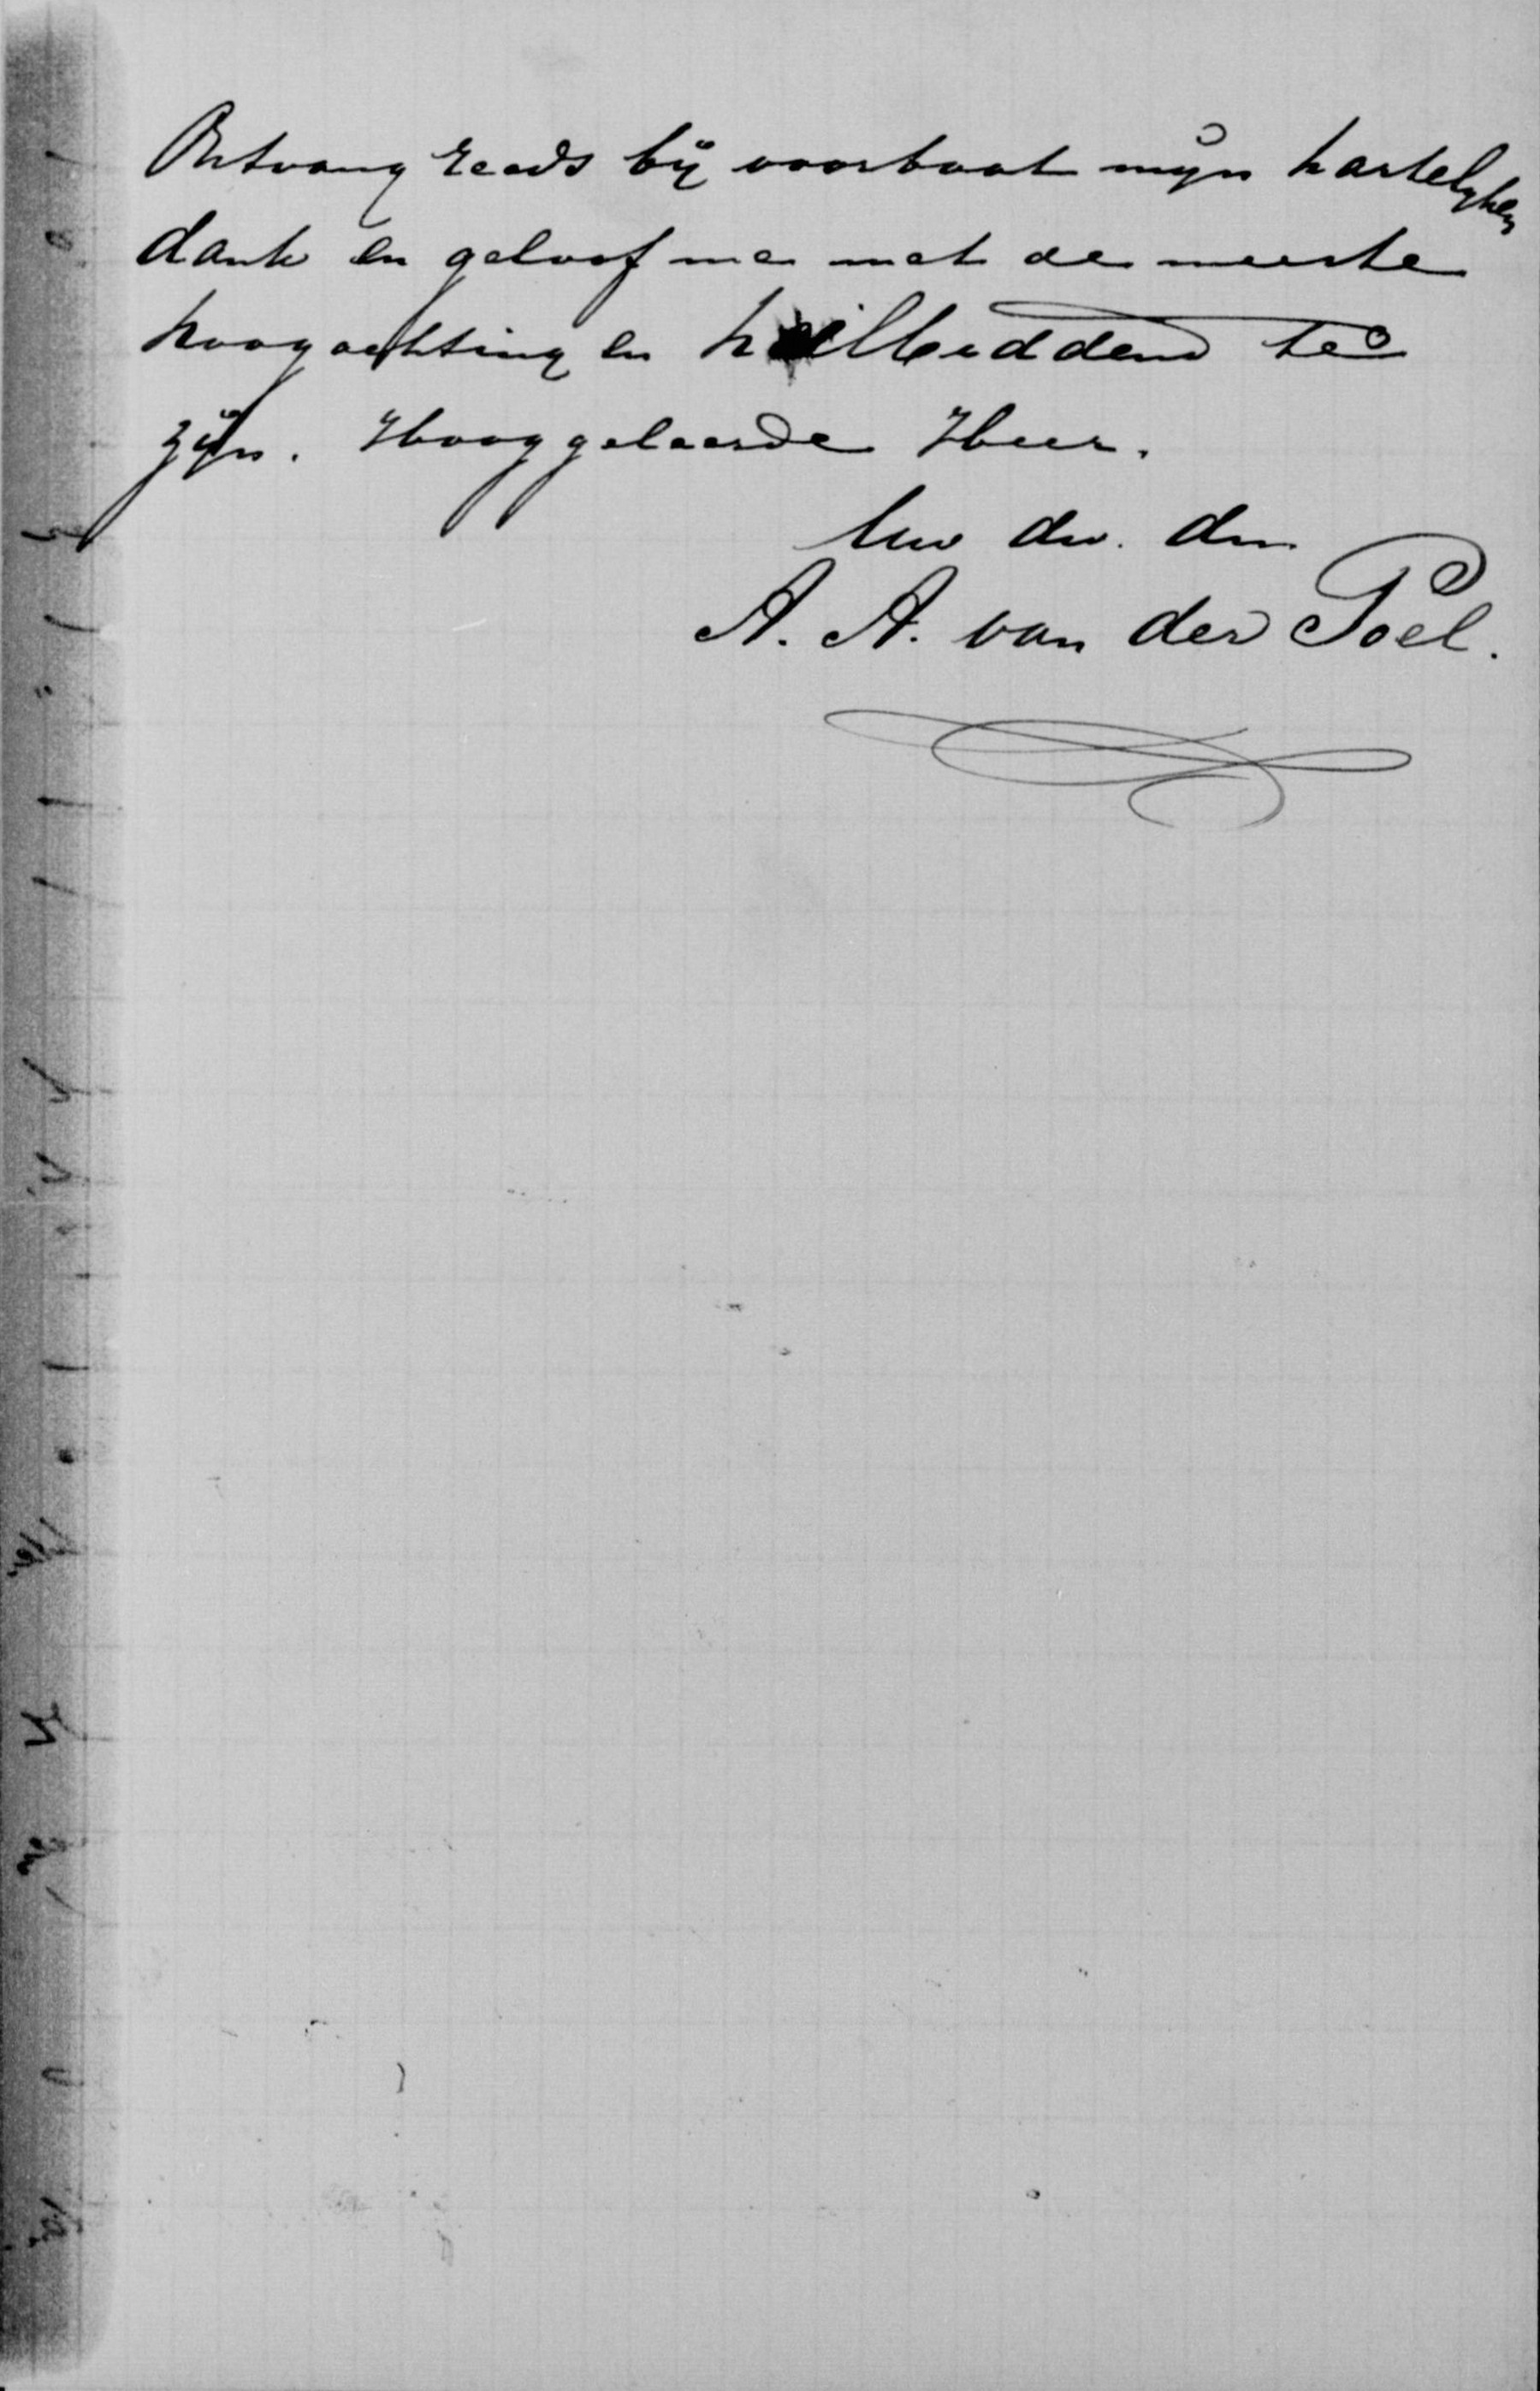 Ontvang reeds bij voorbaat mijn hartelyken
dank en geloof me met de meeste
hoogachting en heilbiddend te
zijn. Hooggeleerde Heer.
Uw dw. dr.
A. A. van der Poel.